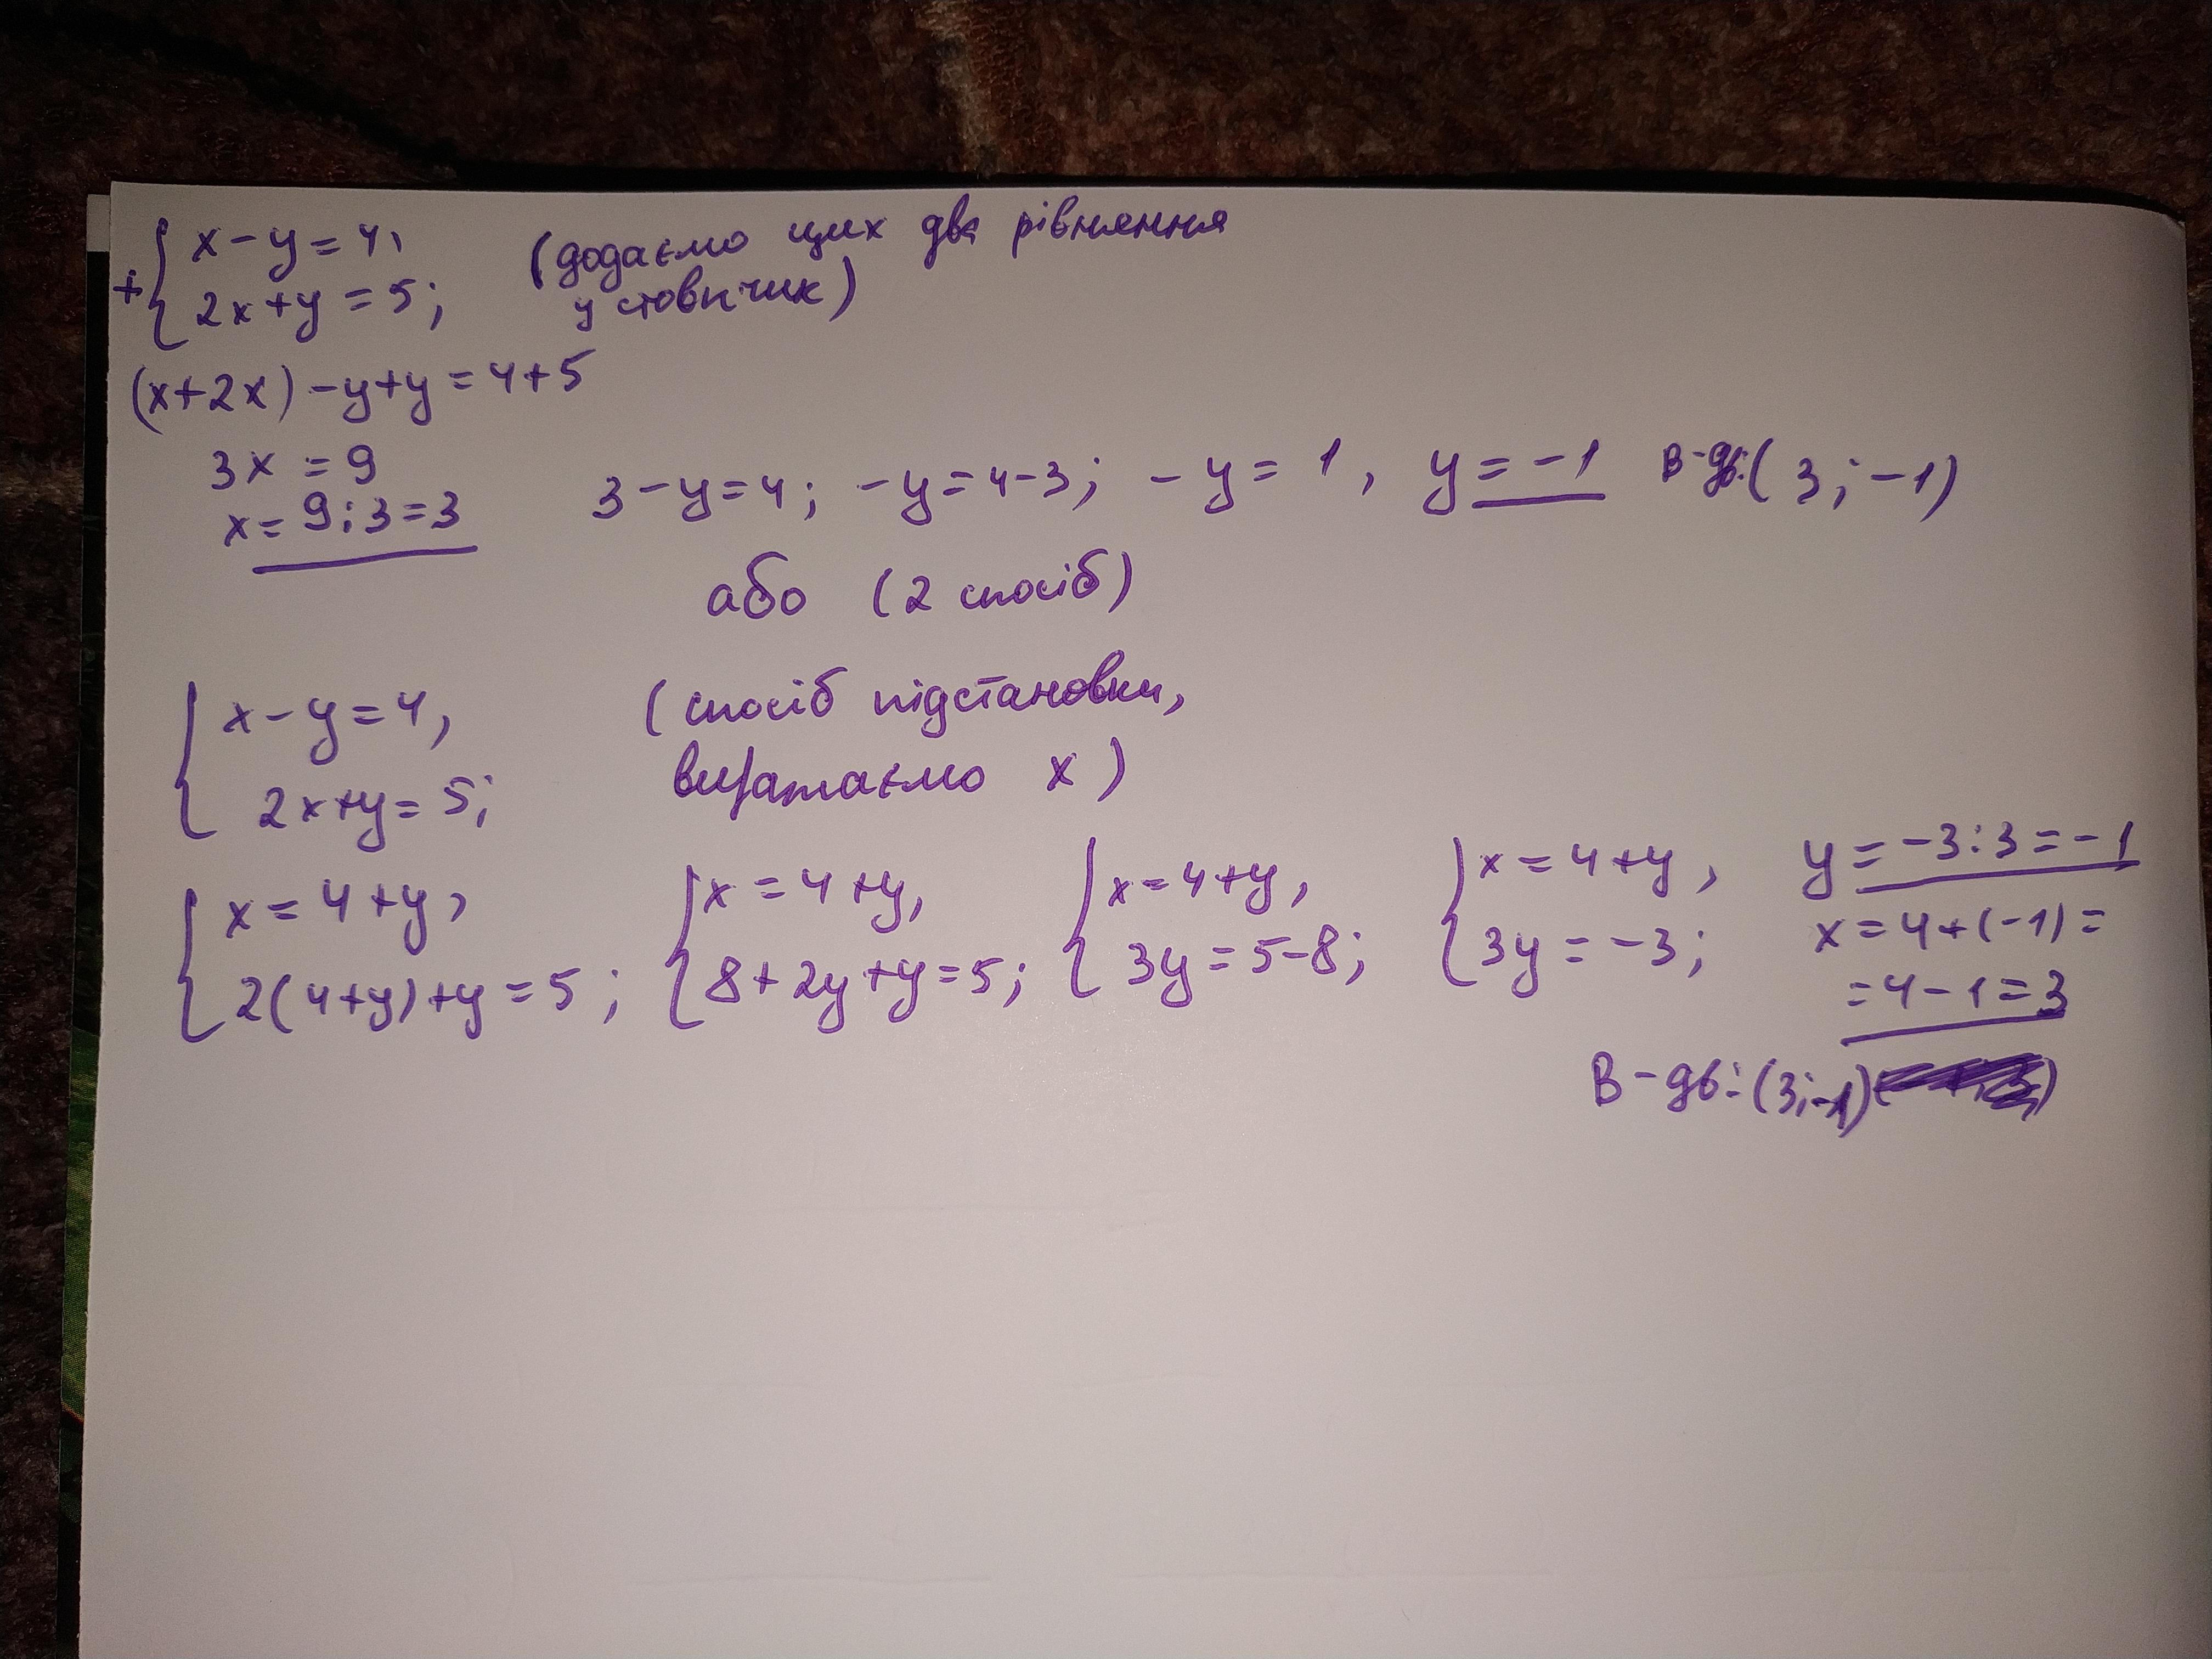 x-y=4,
+ 2x+y=5;
(додаємо цих два рівняння
у стовпчик)
(x+2x)-y+y=4+5
3x=9
x=9:3=3
3-y=4; -y=4-3; -y=1, y=-1 В-дь:(3;-1)
або (2 спосіб)
x-y=4,
2x+y=5;
(спосіб підстановки,
виражаємо x)
x=4+y,
2(4+y)+y=5;
x=4+y,
8+2y+y=5;
x=4+y,
3y=5-8;
x=4+y,
3y=-3;
y=-3:3=-1
x=4+(-1)=
=4-1=3
В-дь:(3;-1)